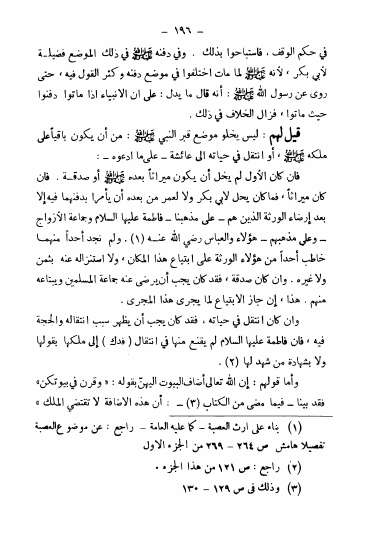 – ١٩٦ –
في حكم الوقف، فاستباحوا بذلك. وفي دفنه ﷺ في ذلك الموضع فضيلة
لأبي بكر، لأنه ﷺ لما مات اختلفوا في موضع دفنه وكثر القول فيه، حتى
روى عن رسول الله ﷺ: أنه قال ما يدل: على ان الانبياء اذا ماتوا دفنوا
حيث ماتوا، فزال الخلاف في ذلك.
قيل لهم: ليس يخلو موضع قبر النبي ﷺ: من أن يكون باقياً على
ملكه ﷺ، أو انتقل في حياته الى عائشة – على ما ادعوه –:
فان كان الأول لم يخل أن يكون ميراثاً بعده ﷺ أو صدقة. فان
كان ميراثاً، فما كان يحل لأبي بكر ولا لعمر من بعده أن يأمرا بدفنهما فيه إلا
بعد إرضاء الورثة الذين هم – على مذهبنا – فاطمة عليها السلام وجماعة الأزواج
– وعلى مذهبهم – هؤلاء والعباس رضي الله عنه (١). ولم نجد أحداً منهما
خاطب أحداً من هؤلاء الورثة على ابتياع هذا المكان، ولا استنزله عنه بثمن
ولا غيره. وان كان صدقة، فقد كان يجب أن يرضى عنه جماعة المسلمين ويبتاعه
منهم. هذا، إن جاز الابتياع لما يجرى هذا المجرى.
وان كان انتقل في حياته، فقد كان يجب أن يظهر سبب انتقاله والحجة
فيه، فان فاطمة عليها السلام لم يقنع منها في انتقال (فدك) إلى ملكها بقولها
ولا بشهادة من شهد لها (٢).
وأما قولهم: إن الله تعالى أضاف البيوت اليهن بقوله: «وقرن في بيوتكن»
فقد بينا – فيما مضى من الكتاب (٣) –: أن هذه الاضافة لا تقتضي الملك «
(١) بناء على ارث العصبة – كما عليه العامة – راجع: عن موضوع العصبة
تفصيلا هامش ص ٢٦٤ – ٢٦٩ من الجزء الاول
(٢) راجع: ص ١٢١ من هذا الجزء.
(٣) وذلك في ص ١٢٩ – ١٣٠